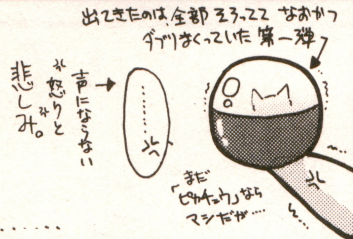 出てきたのは、全部そろってて なおかつ
ダブりまくっていた 第一弾
声にならない
怒りと
悲しみ。
…………
まだ
「ピカチュウ」なら
マシだが……
………